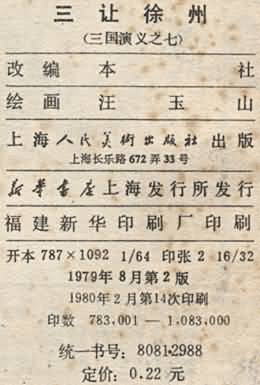 三让徐州
(三国演义之七)
改编 本社
绘画 汪玉山
上海人民美術出版社出版
上海长乐路672弄33号
新华書店上海发行所发行
福建新华印刷厂印刷
开本 787×1092 1/64 印张 2 16/32
1979年8月第2版
1980年2月第14次印刷
印数 783,001—1,083,000
统一书号: 8081·2988
定价: 0.22 元